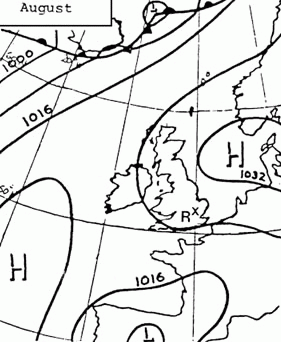 August
L
1000
1016
H
1032
R X
H
1016
L